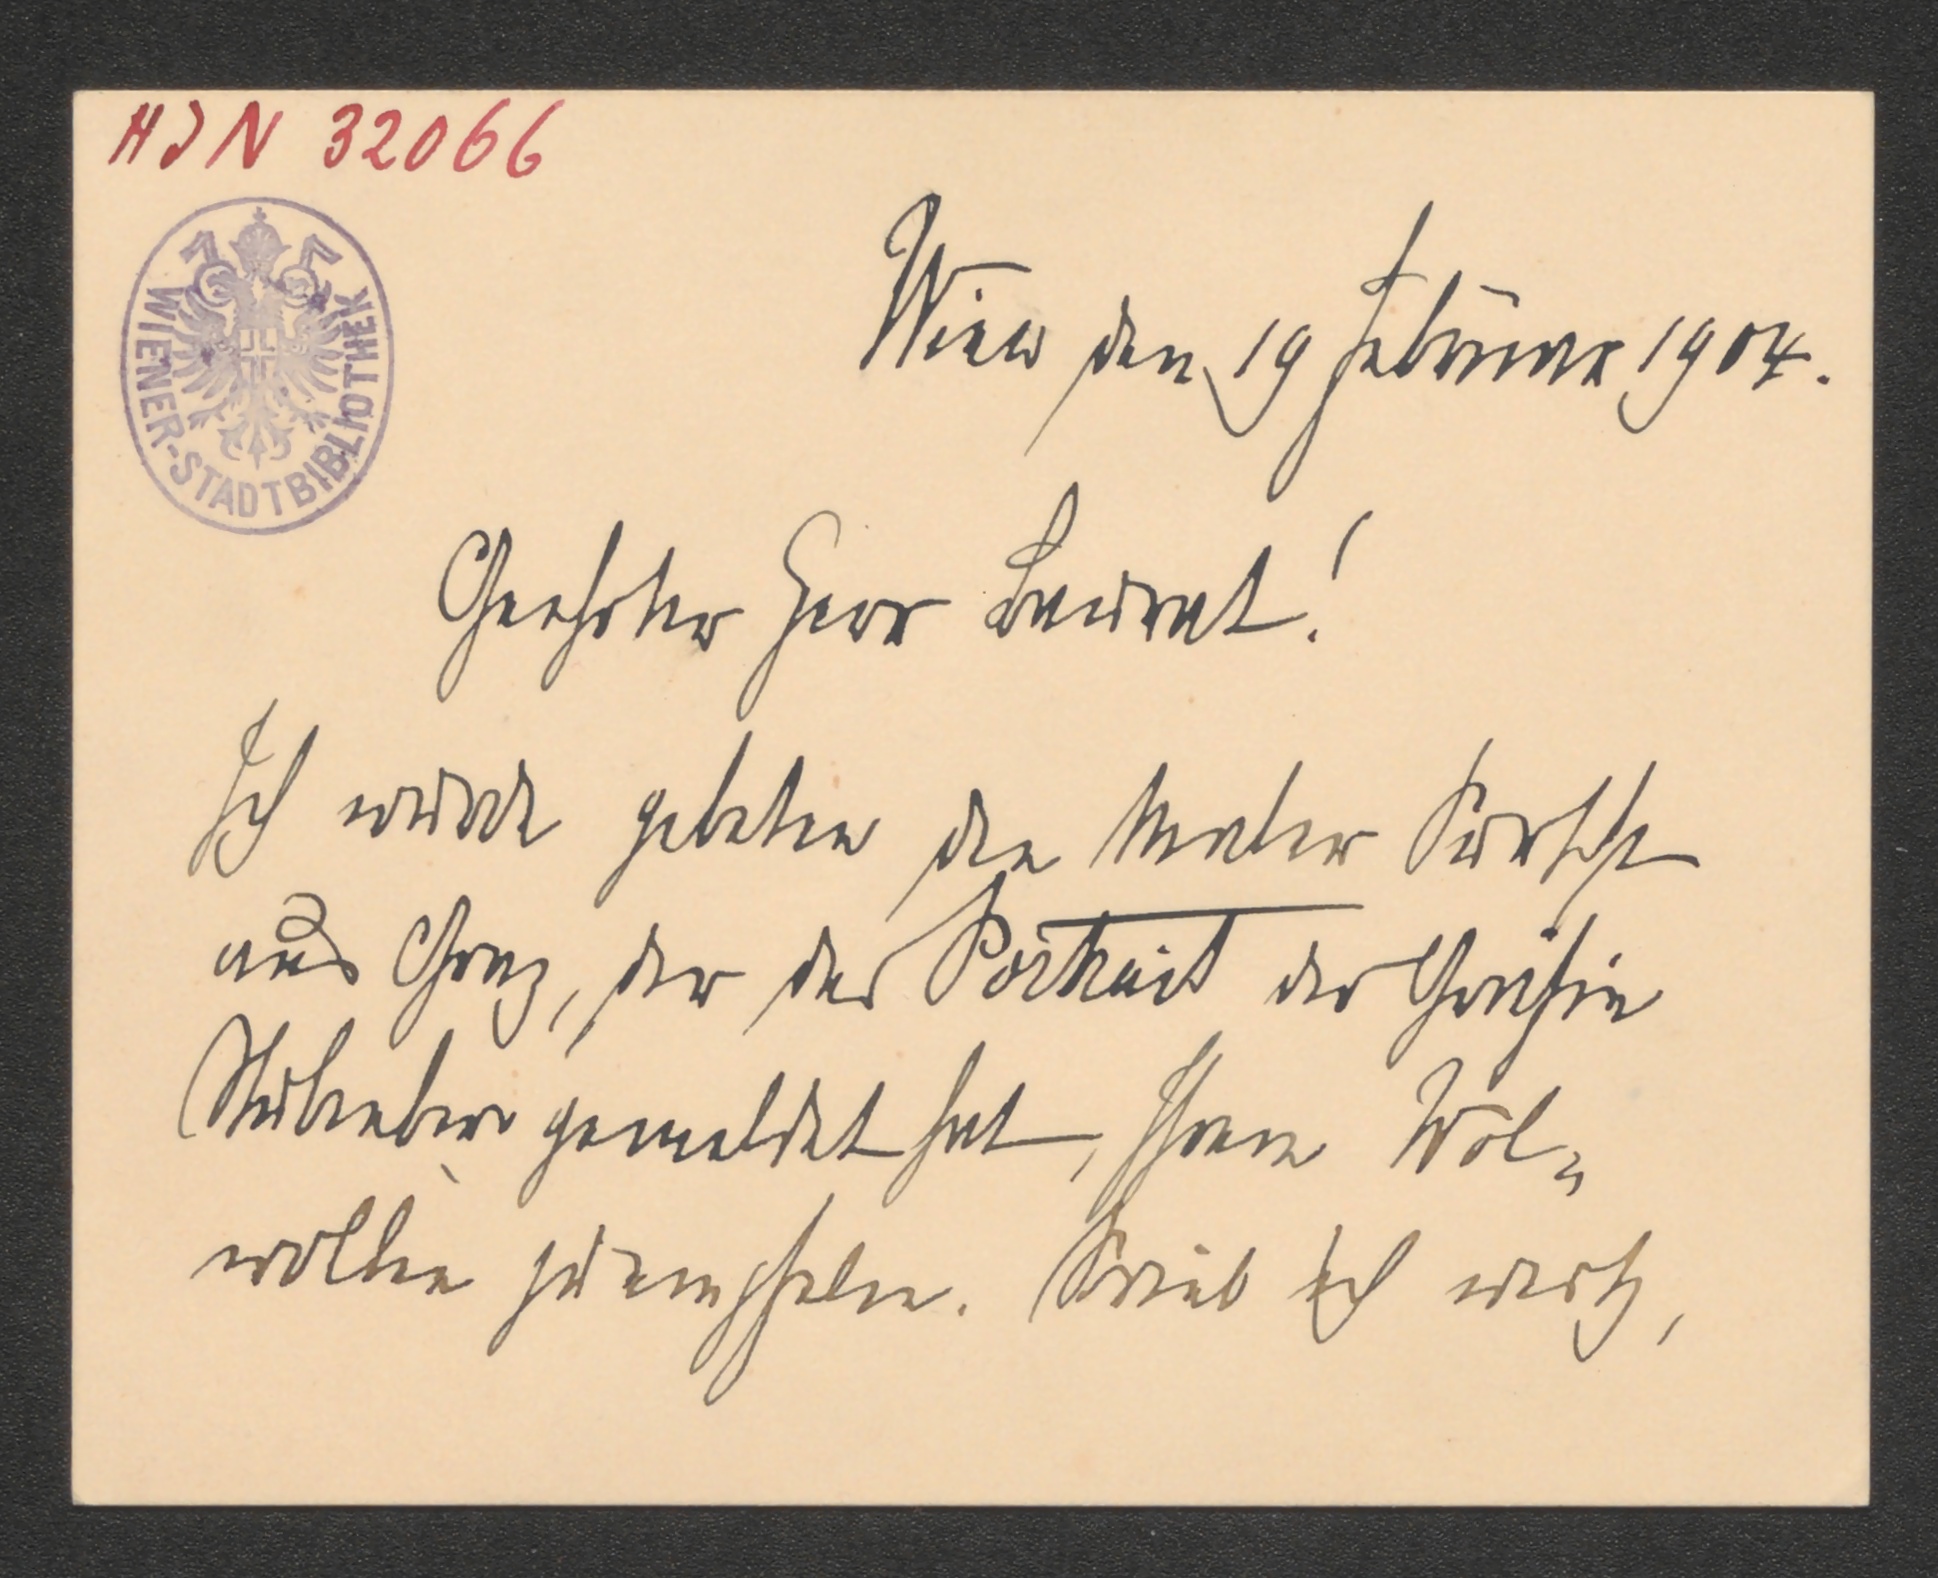 HJN 32066
WIENER-STADTBIBLIOTHEK
Wien den 19 Februar 1904.
Geehrter Herr Baurat!
Ich wurde gebeten den Maler
aus Graz, der das Portrait der Gräfin
Stubenberg gemeldet hat, Ihrem Wol-
wollen zu empfehlen. ich